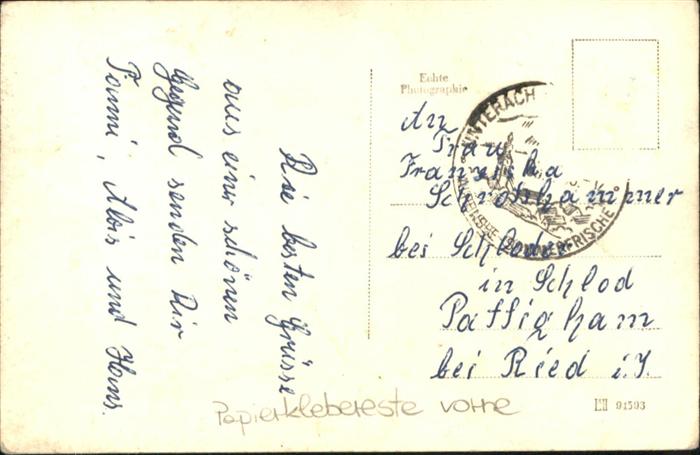 Die besten Grüsse
aus einer schönen
Gegend senden Dir
Tonni, Alois und Hans.
Echte
Photographie
UNTERACH
SOMMERFRISCHE
An
Frau
Franziska
Schrottshammer
bei Schloder
in Schlod
Pattigham
bei Ried i.I.
Papierklebereste vorne
91593